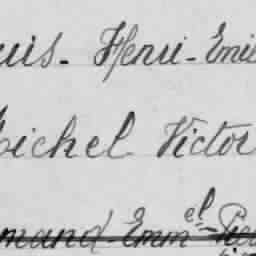 uis- Henri-Emil
Michel Victor
mand-Emm^el-Pie